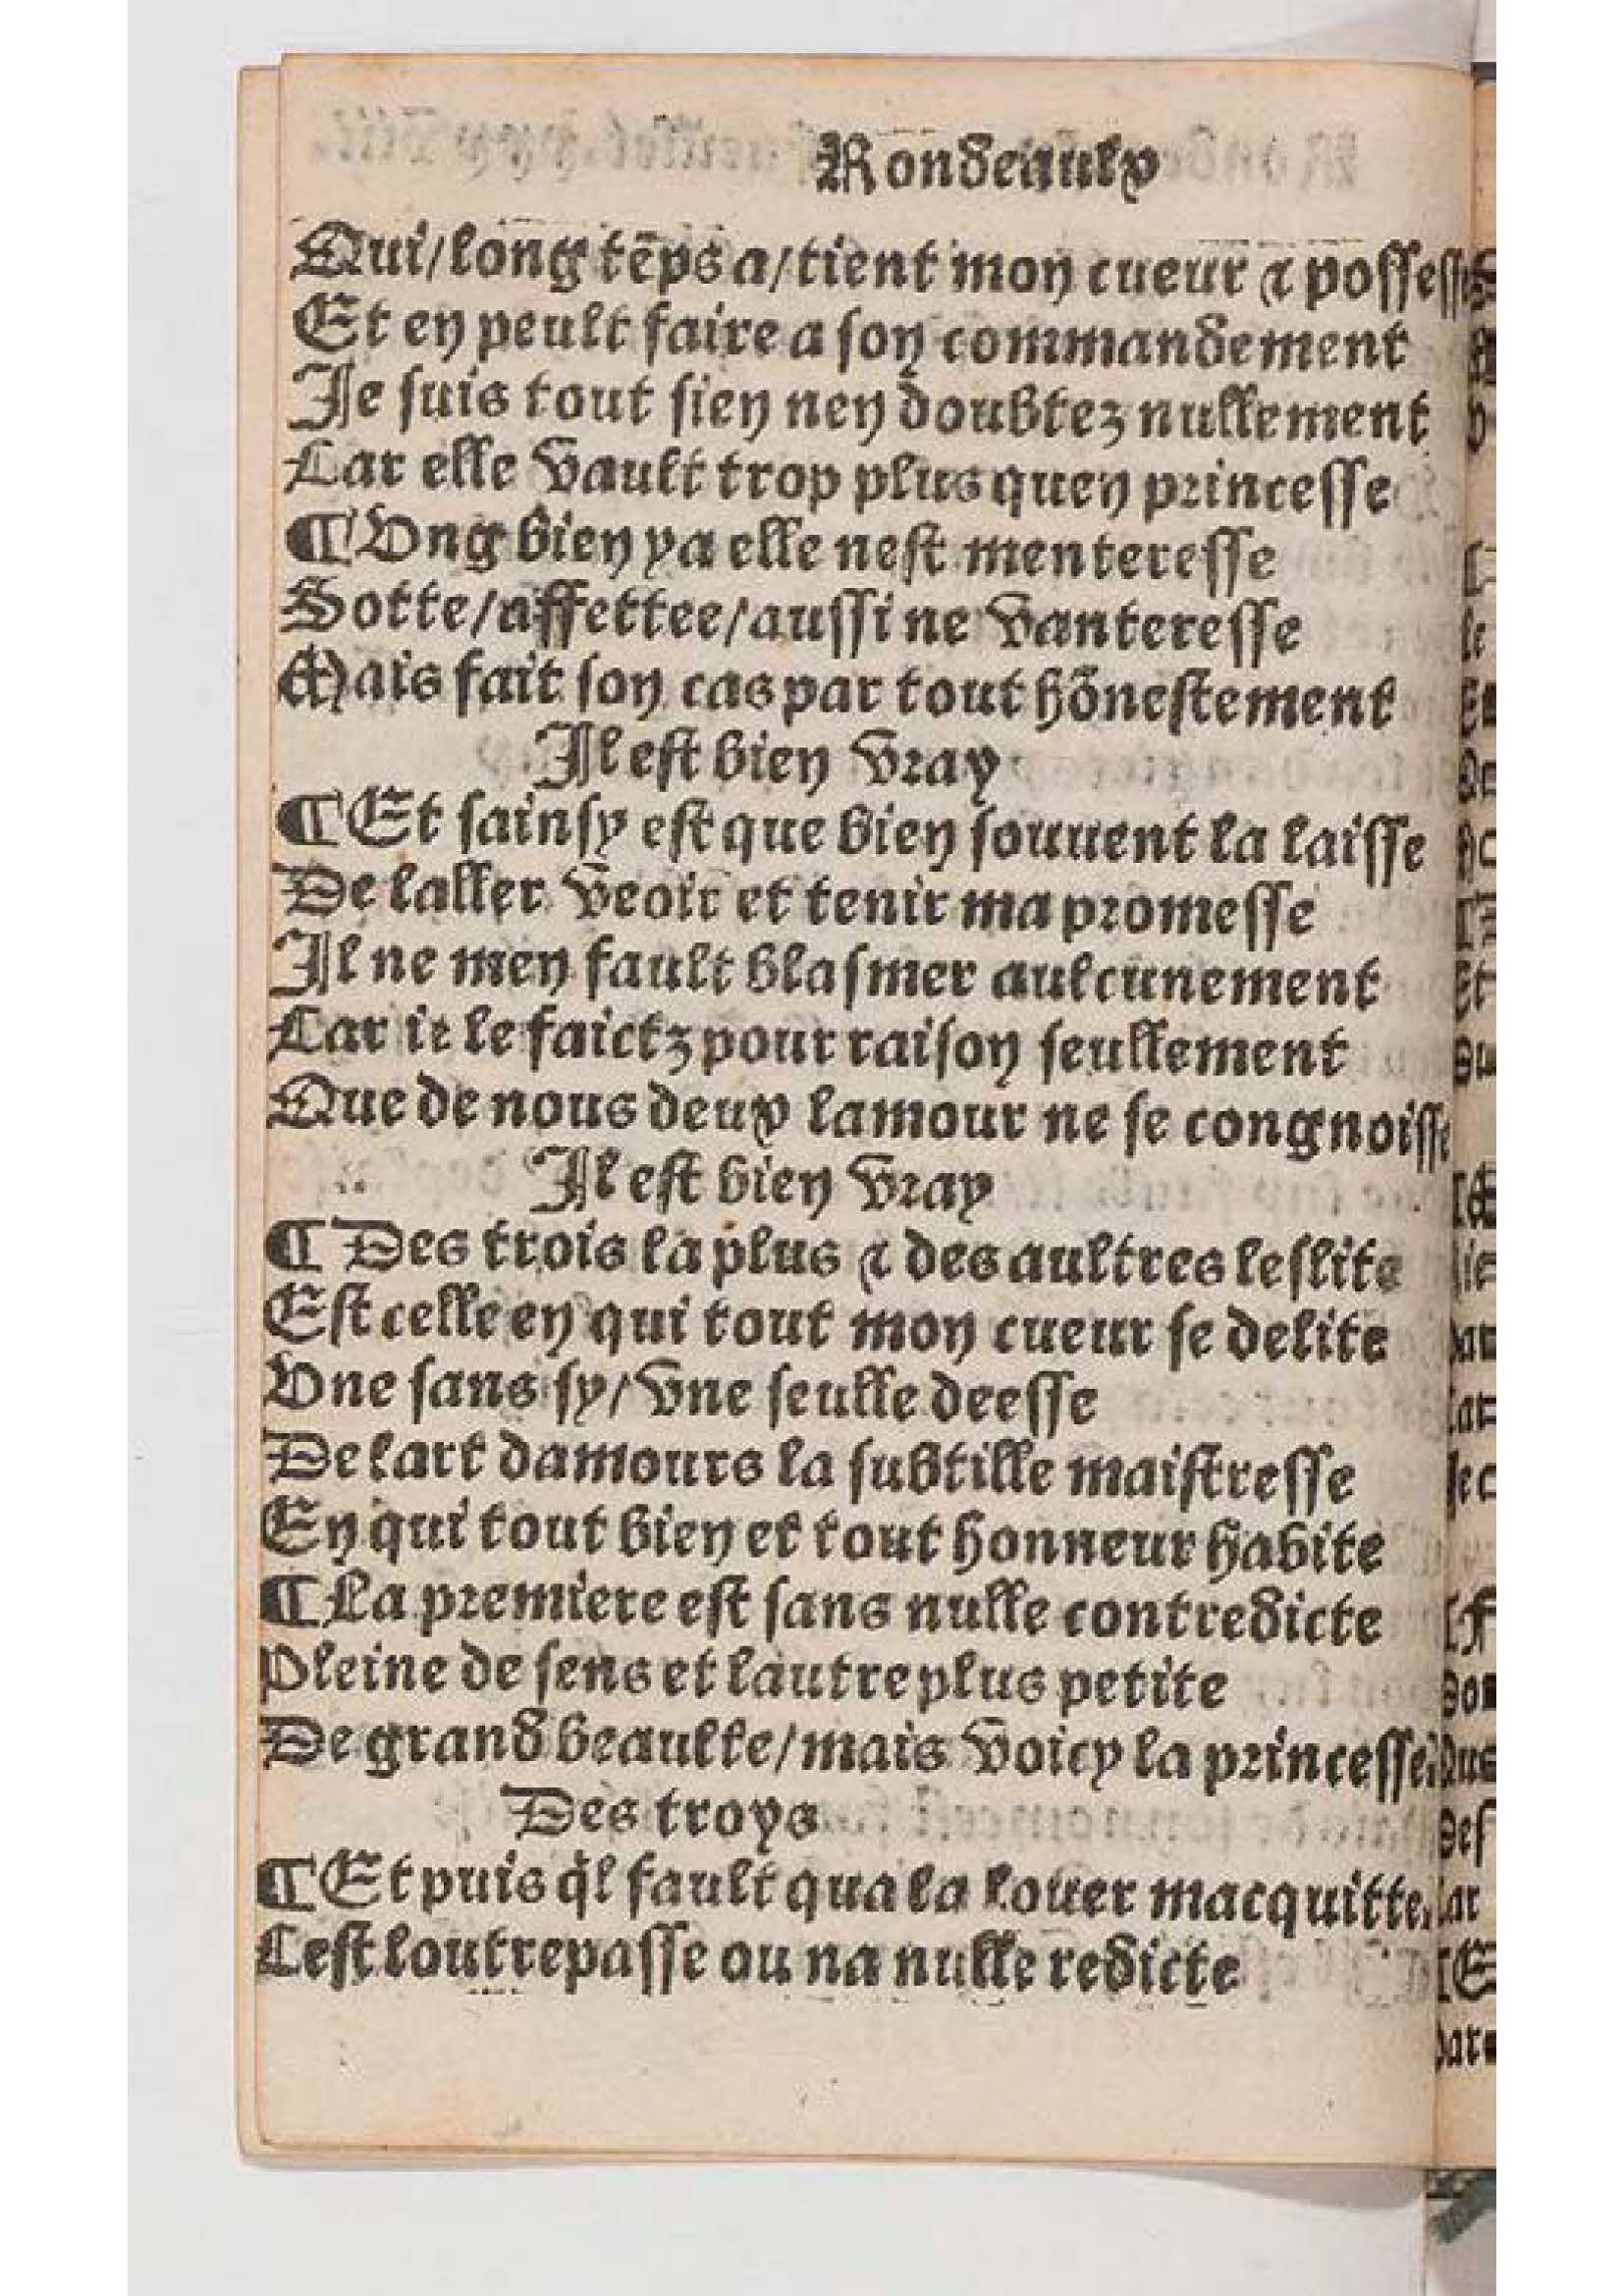 Rondeaulx
Qui/long tēps a/tient mon cueur & possesse
Et en peult faire a son commandement
Je suis tout sien nen doubtez nullement
Car elle vault trop plus quen princesse
¶Ung bien ya elle nest menteresse
Sotte/affettee/aussi ne vanteresse
Mais fait son cas par tout hōnestement
Il est bien vray
¶Et sainsy est que bien souuent la laisse
De laller veoir et tenir ma promesse
Il ne men fault blasmer aulcunement
Car ie le faictz pour raison seullement
Que de nous deux lamour ne se congnoisse
Il est bien vray
¶Des trois la plus & des aultres leslite
Est celle en qui tout mon cueur se delite
Une sans sy/vne seulle deesse
De lart damours la subtille maistresse
En qui tout bien et tout honneur habite
¶La premiere est sans nulle contredicte
Pleine de sens et lautre plus petite
De grand beaulte/mais voicy la princesse
Des troys
¶Et puis q̄l fault qua la louer macquitte
Cest loutrepasse ou na nulle redicte